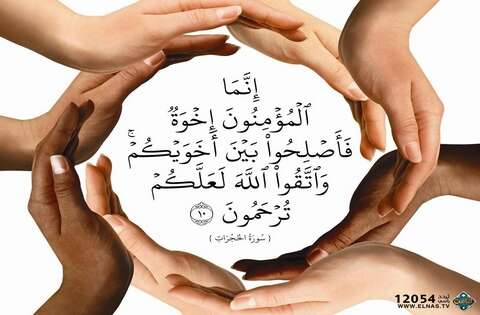 إِنَّمَا
ٱلْمُؤْمِنُونَ إِخْوَةٌ
فَأَصْلِحُوا۟ بَيْنَ أَخَوَيْكُمْ ۚ
وَٱتَّقُوا۟ ٱللَّهَ لَعَلَّكُمْ
تُرْحَمُونَ ١٠
( سُورَةُ الحُجُرَاتِ )
12054
WWW.ELNAS.TV